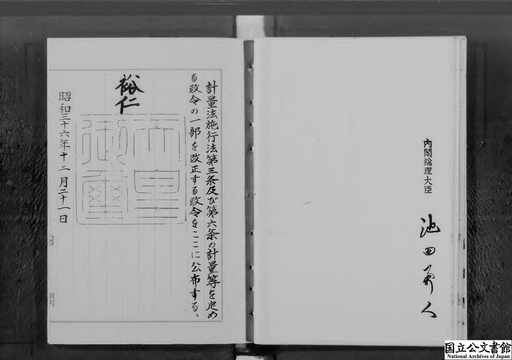 計量法施行法第三条及び第六条の計量等を定め
る政令の一部を改正する政令をここに公布する。
裕仁
天皇
御璽
昭和三十六年十二月二十一日
内閣総理大臣
池田勇人
国立公文書館
National Archives of Japan